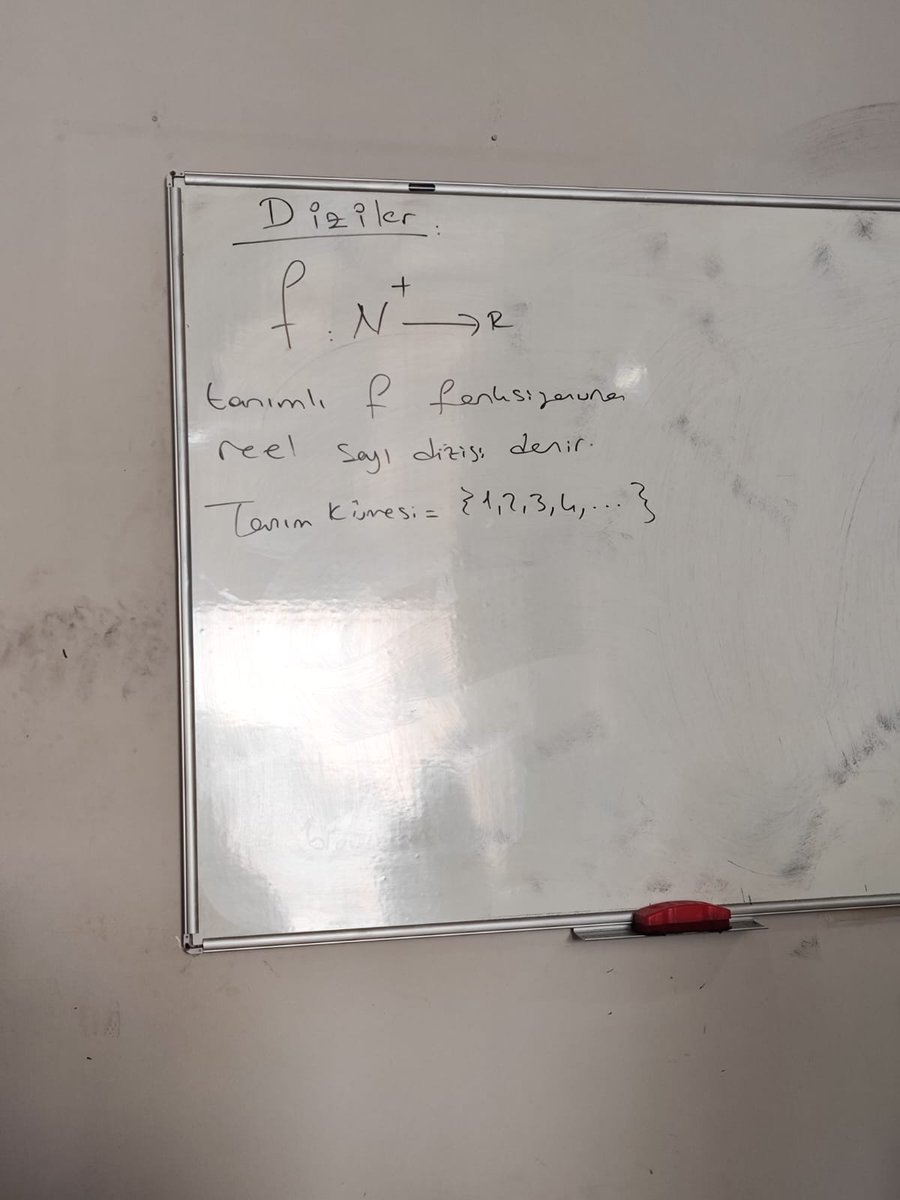 Diziler:
f : N⁺ → R
tanımlı f fonksiyonuna
reel sayı dizisi denir.
Tanım Kümesi = {1,2,3,4,...}